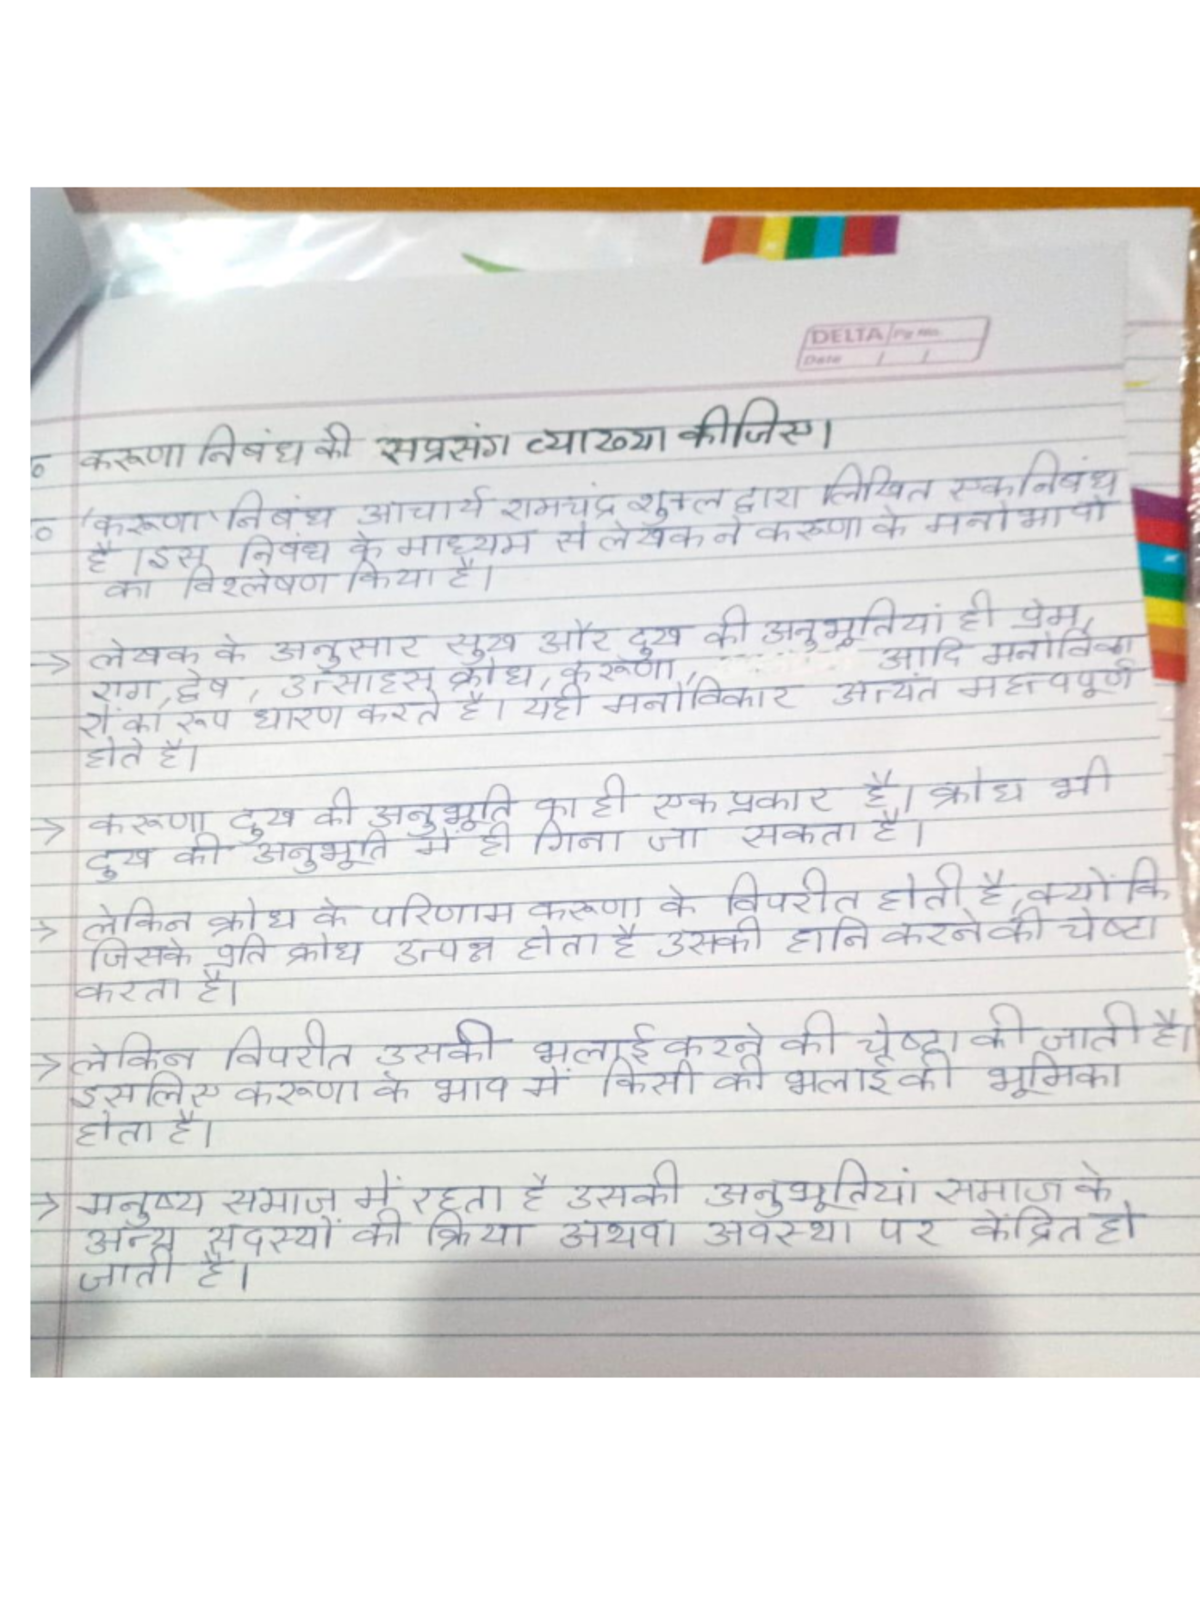 DELTA Pg No.
Date / /
करूणा निबंध की सप्रसंग व्याख्या कीजिए।
'करूणा' निबंध आचार्य रामचंद्र शुक्ल द्वारा लिखित एक निबंध
है। इस निबंध के माध्यम से लेखक ने करूणा के मनोभावो
का विश्लेषण किया है।
→ लेखक के अनुसार सुख और दुख की अनुभूतियां ही प्रेम,
राग, द्वेष, उत्साहस क्रोध, करूणा, आदि मनोविका
रों का रूप धारण करते है। यही मनोविकार अत्यंत महत्वपूर्ण
होते है।
→ करूणा दुख की अनुभूति का ही एक प्रकार है। क्रोध भी
दुख की अनुभूति में ही गिना जा सकता है।
→ लेकिन क्रोध के परिणाम करूणा के विपरीत होती है, क्योंकि
जिसके प्रति क्रोध उत्पन्न होता है उसकी हानि करने की चेष्टा
करता है।
→ लेकिन विपरीत उसकी भलाई करने की चेष्टा की जाती है।
इसलिए करूणा के भाव में किसी की भलाई की भूमिका
होता है।
→ मनुष्य समाज में रहता है उसकी अनुभूतियां समाज के
अन्य सदस्यों की क्रिया अथवा अवस्था पर केंद्रित हो
जाती है।